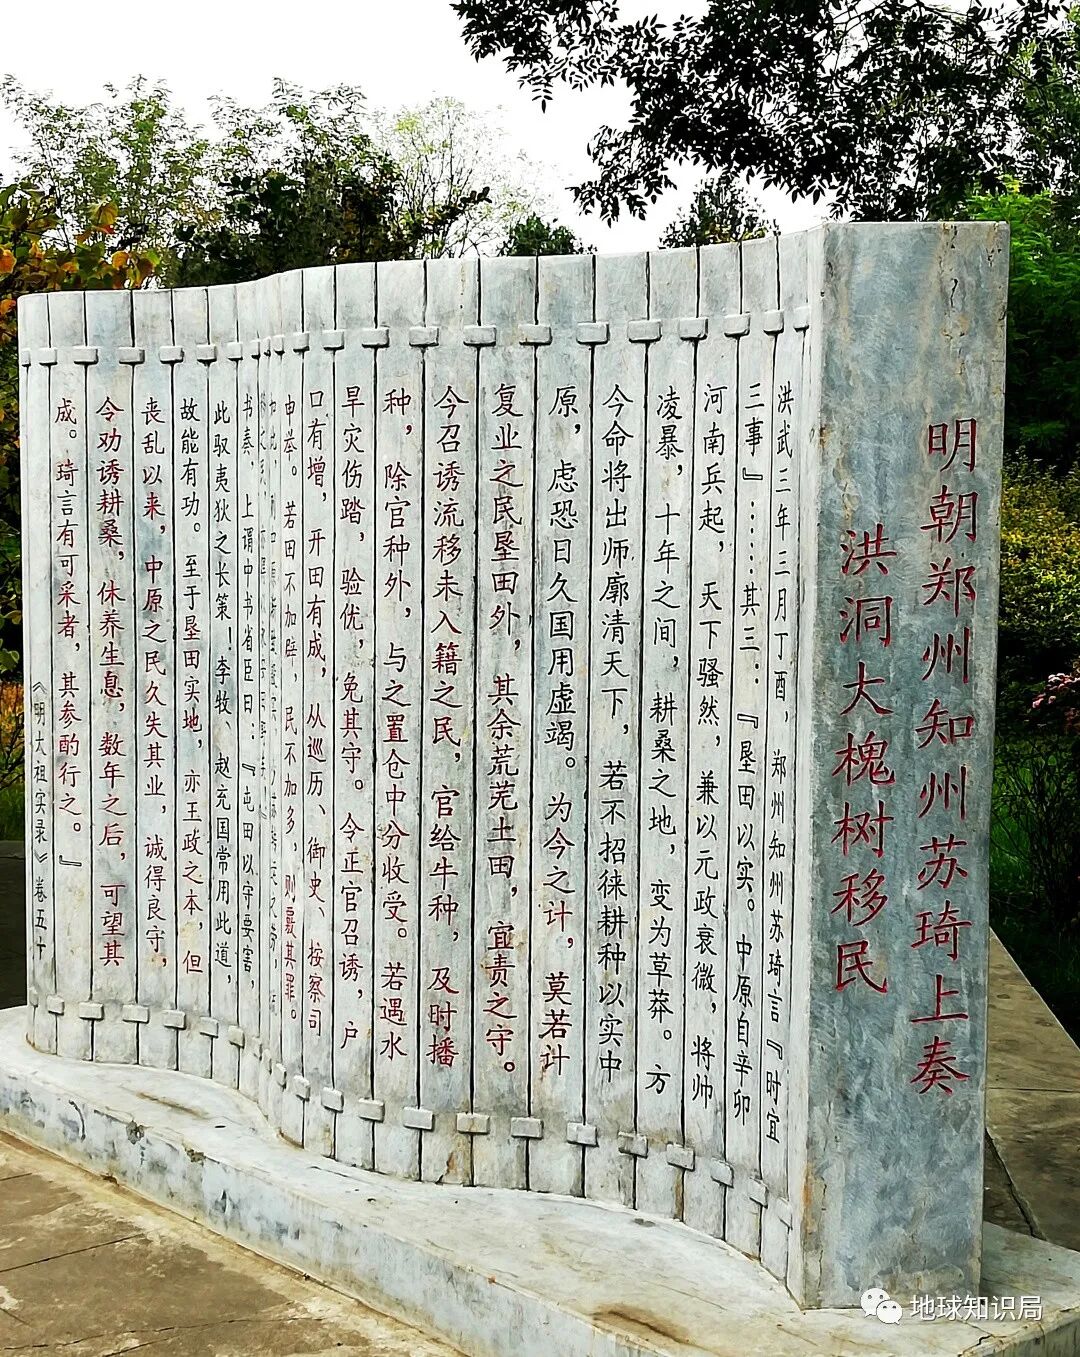 明朝郑州知州苏琦上奏
洪洞大槐树移民
洪武三年三月丁酉，郑州知州苏琦言『时宜
三事』：……其三：『垦田以实。中原自辛卯
河南兵起，天下骚然，兼以元政衰微，将帅
凌暴，十年之间，耕桑之地，变为草莽。方
今命将出师廓清天下，若不招徕耕种以实中
原，虑恐日久国用虚竭。为今之计，莫若计
复业之民垦田外，其余荒芜土田，宜责之守。
今召诱流移未入籍之民，官给牛种，及时播
种，除官种外，与之置仓中分收受。若遇水
旱灾伤踏，验优，免其守。今正官召诱，户
口有增，开田有成，从巡历、御史、按察司
申举。若田不加辟，民不加多，则覈其罪。
书奏，上谓中书省臣曰：『屯田以守要害，
此驭夷狄之长策！李牧、赵充国常用此道，
故能有功。至于垦田实地，亦王政之本，但
丧乱以来，中原之民久失其业，诚得良守，
令劝诱耕桑，休养生息，数年之后，可望其
成。琦言有可采者，其参酌行之。』
《明大祖实录》卷五十
地球知识局